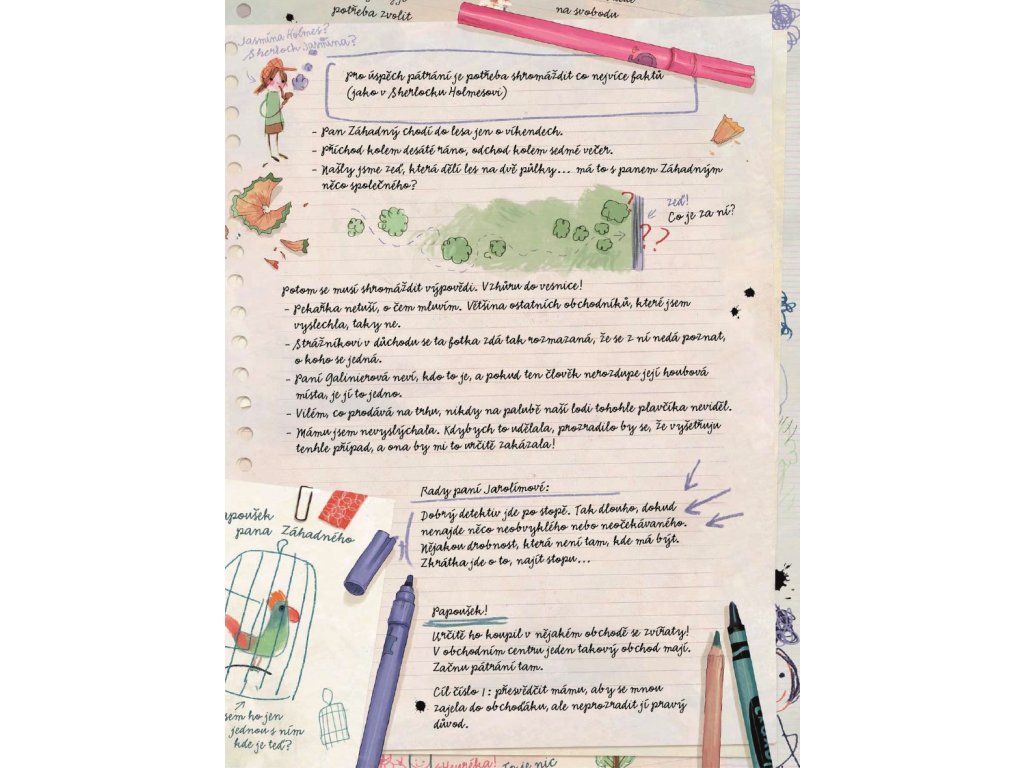 potřeba zvolit
na svobodu
Jasmína Holmes?
Sherloch Jasmína?
Pro úspěch pátrání je potřeba shromáždit co nejvíce faktů
(jako v Sherlocku Holmesovi)
- Pan Záhadný chodí do lesa jen o víkendech.
- Příchod kolem desáté ráno, odchod kolem sedmé večer.
- Našly jsme zeď, která dělí les na dvě půlky... má to s panem Záhadným
něco společného?
?
zeď!
Co je za ní?
? ?
Potom se musí shromáždit výpovědi. Vzhůru do vesnice!
- Pekařka netuší, o čem mluvím. Většina ostatních obchodníků, které jsem
vyslechla, taky ne.
- Strážníkovi v důchodu se ta fotka zdá tak rozmazaná, že se z ní nedá poznat,
o koho se jedná.
- Paní Galinierová neví, kdo to je, a pokud ten člověk nerozdupe její houbová
místa, je jí to jedno.
- Vilém, co prodává na trhu, nikdy na palubě naší lodi tohohle plavčíka neviděl.
- Mámu jsem nevyslýchala. Kdybych to udělala, prozradilo by se, že vyšetřuju
tenhle případ, a ona by mi to určitě zakázala!
Rady paní Jarolímové:
Dobrý detektiv jde po stopě. Tak dlouho, dokud
nenajde něco neobvyklého nebo neočekávaného.
Nějakou drobnost, která není tam, kde má být.
Zkrátka jde o to, najít stopu...
apoušek
pana Záhadného
Papoušek!
Určitě ho koupil v nějakém obchodě se zvířaty!
V obchodním centru jeden takový obchod mají.
Začnu pátrání tam.
Cíl číslo 1: přesvědčit mámu, aby se mnou
zajela do obchoďáku, ale neprozradit jí pravý
důvod.
sem ho jen
jednou s ním
kde je teď?
Heuréka! To je nic